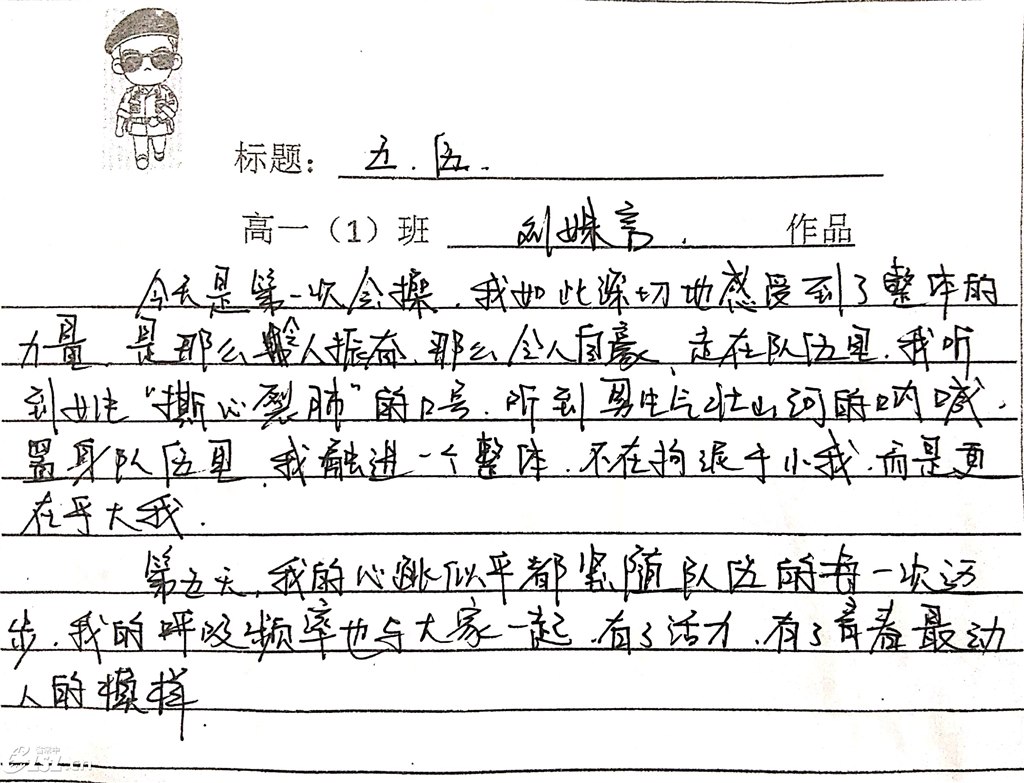 标题: 五.伍.
高一（1）班 刘姝言. 作品
今天是第一次会操.我如此深切地感受到了整体的
力量.是那么令人振奋.那么令人自豪.走在队伍里.我听
到女生"撕心裂肺"的口号.听到男生气壮山河的呐喊.
置身队伍里.我融进一个整体.不在拘泥于小我.而是更
在乎大我.
第五天.我的心跳似乎都紧随队伍的每一次迈
步.我的呼吸频率也与大家一起.有了活力.有了青春最动
人的模样.